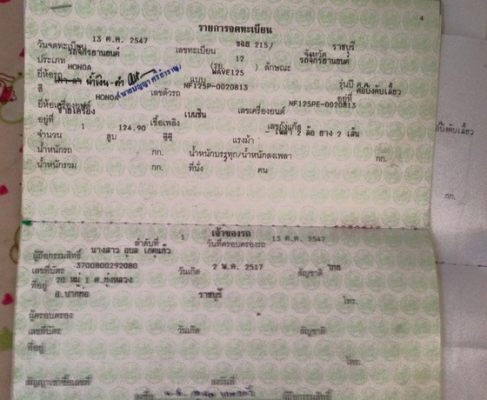 4
รายการจดทะเบียน
วันจดทะเบียน 13 ต.ค. 2547 เลขทะเบียน 215/ จังหวัด ราชบุรี
ประเภท รถจักรยานยนต์ 12 ลักษณะ รถจักรยานยนต์
ยี่ห้อรถ HONDA แบบ WAVE125 รุ่นปี
สี น้ำเงิน-ดำ เลขตัวรถ NF125P-0020813 อยู่ที่ คอบังคับเลี้ยว
ยี่ห้อเครื่องยนต์ HONDA เลขเครื่องยนต์ NF125PE-0020813
อยู่ที่ เชื้อเพลิง เบนซิน เลขถังแก๊ส
จำนวน 1 สูบ 124.90 ซีซี แรงม้า 2 ล้อ ยาง 2 เส้น
น้ำหนักรถ กก. น้ำหนักบรรทุก/น้ำหนักลงเพลา กก.
น้ำหนักรวม กก. ที่นั่ง คน
เจ้าของรถ
ลำดับที่ 1 วันที่ครอบครองรถ 13 ต.ค. 2547
ผู้ถือกรรมสิทธิ์ นางสาว
เลขที่บัตร 3700800292080 วันเกิด 2 พ.ค. 2517 สัญชาติ ไทย
ที่อยู่ 20 หมู่ 1 ต.ทุ่งหลวง
อ.ปากท่อ ราชบุรี โทร.
ผู้ครอบครอง
เลขที่บัตร วันเกิด สัญชาติ
ที่อยู่
โทร.
สัญญาเช่าซื้อเลขที่ ลงวันที่
ลงชื่อ ผู้ถือกรรมสิทธิ์